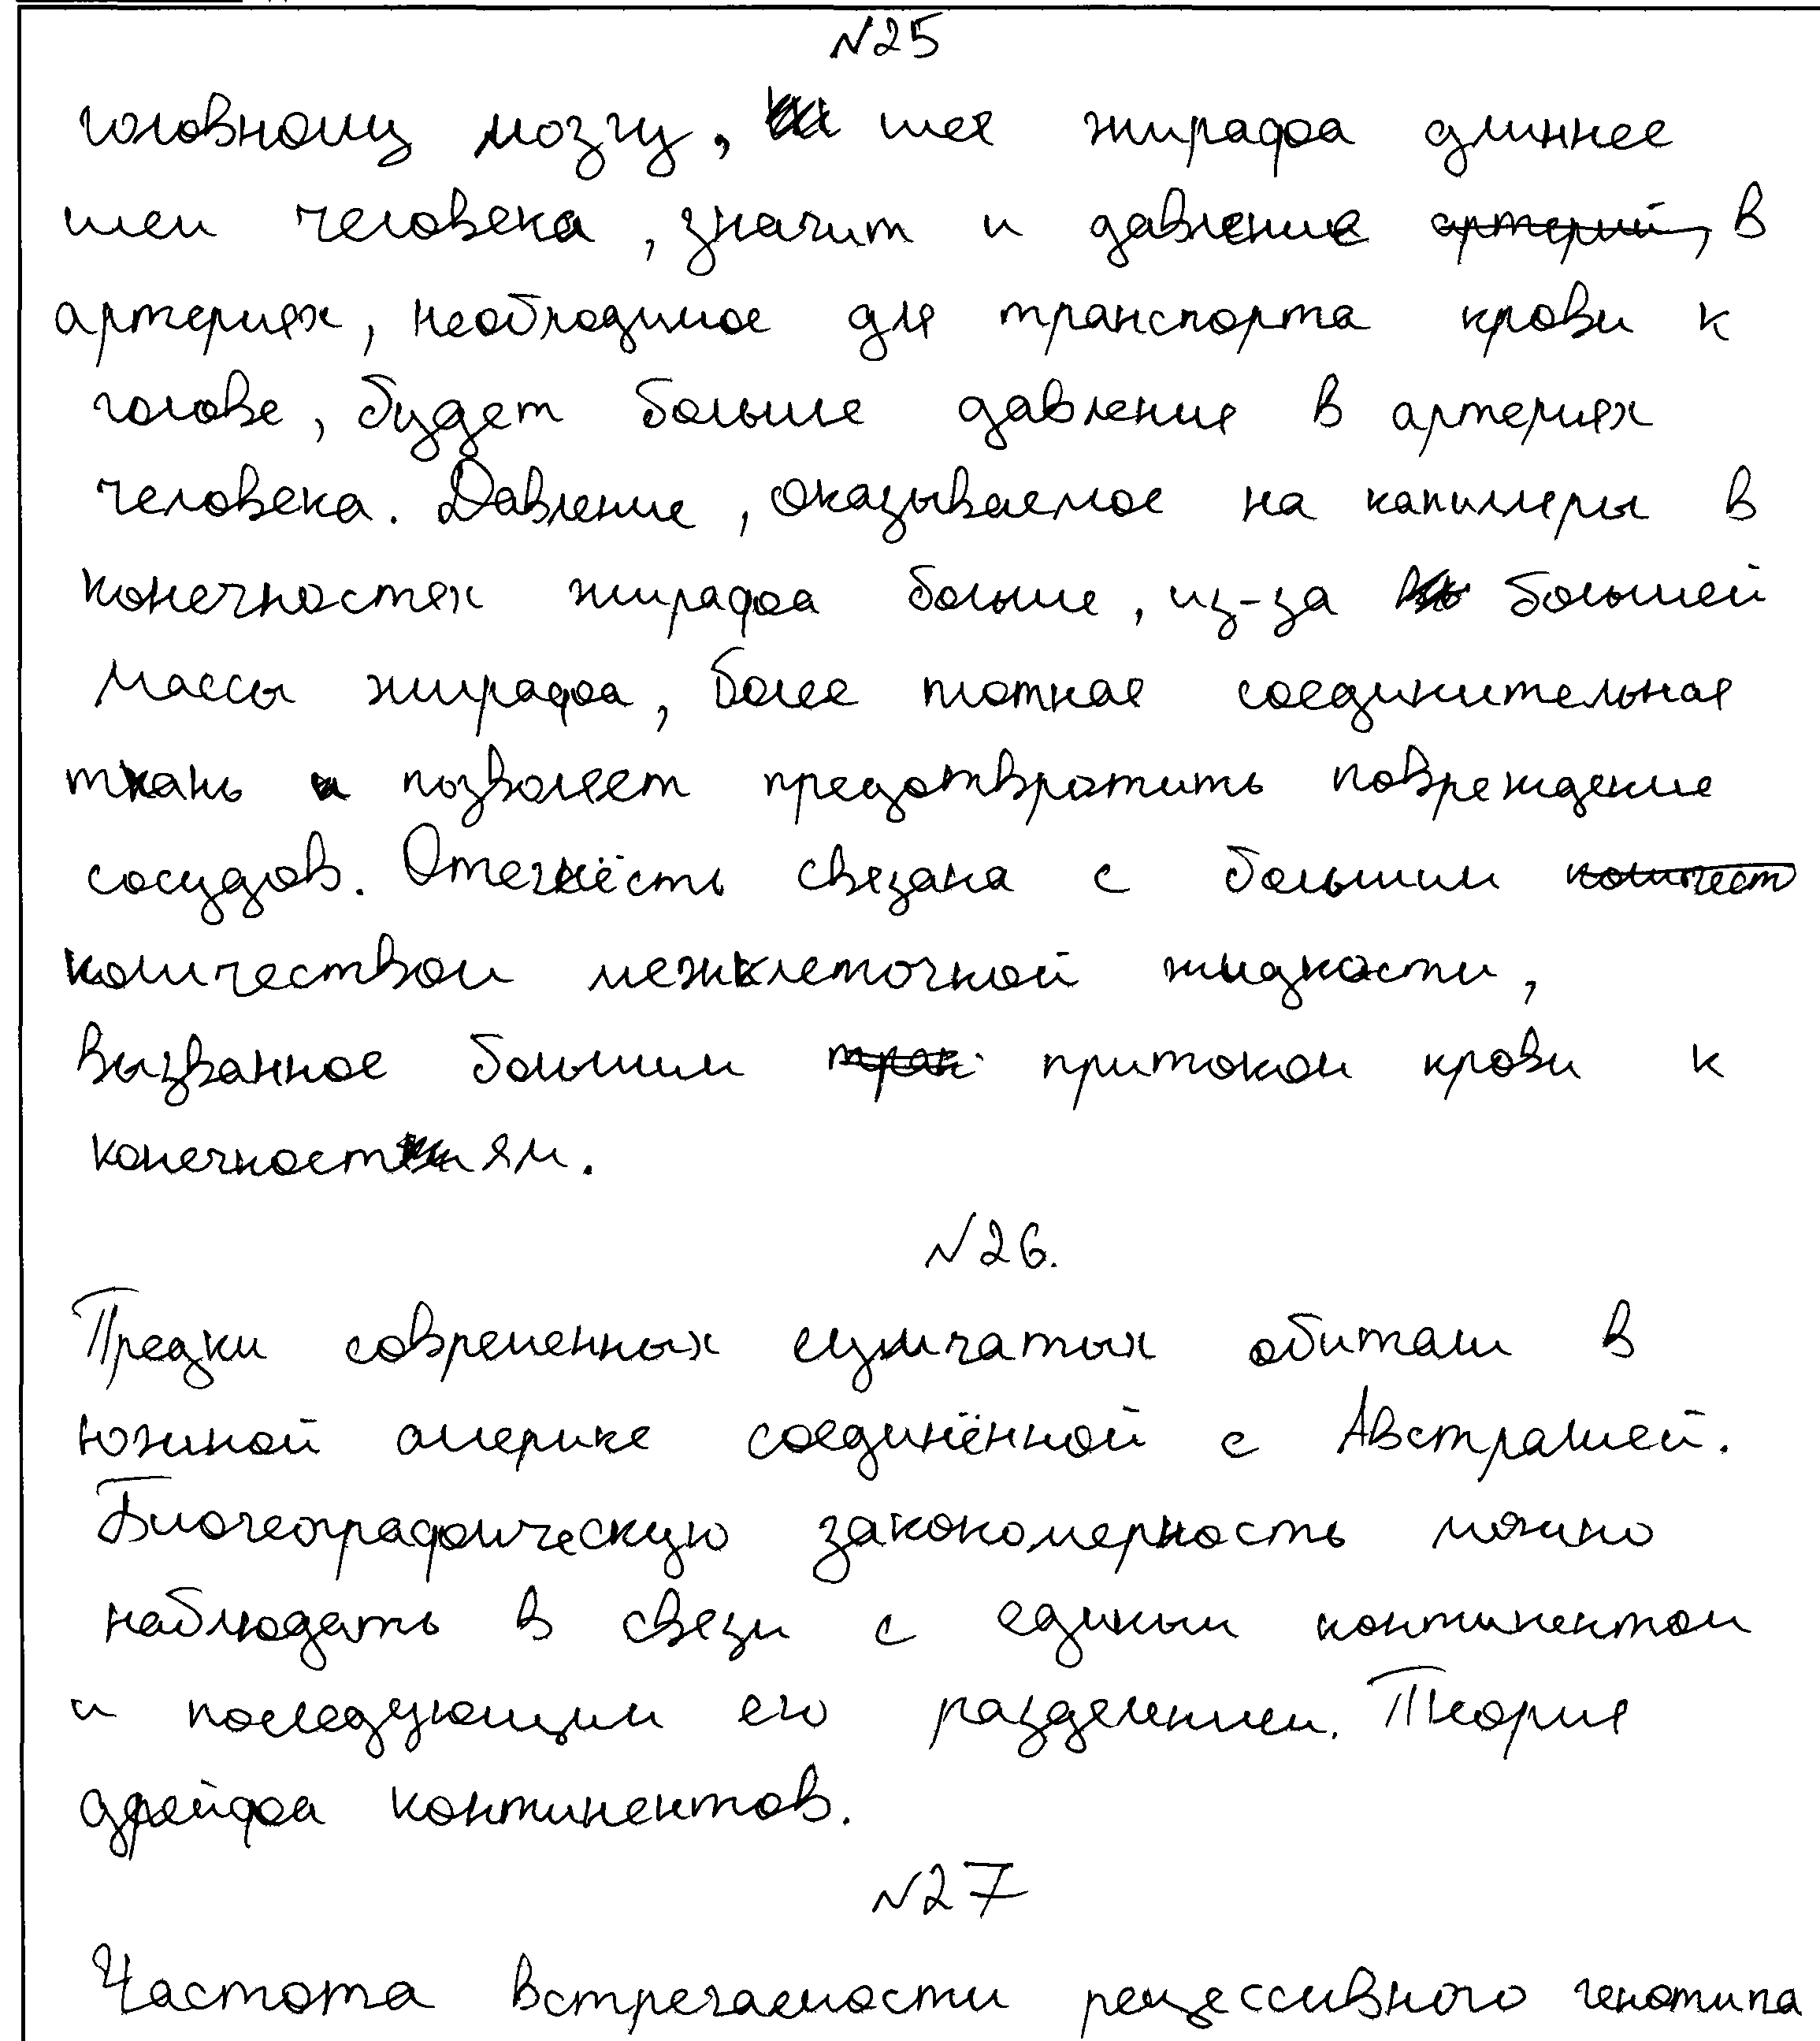 №25
головному мозгу, шея жирафа длиннее
шеи человека, значит и давление артерий, в
артериях, необходимое для транспорта крови к
голове, будет больше давления в артериях
человека. Давление, оказываемое на капилляры в
конечностях жирафа больше, из-за большей
массы жирафа, более плотная соединительная
ткань позволяет предотвратить повреждение
сосудов. Отечность связана с большим количест
количеством межклеточной жидкости,
вызванное большим тран притоком крови к
конечностям.
№26.
Предки современных сумчатых обитали в
южной америке соединённой с Австралией.
Биогеографическую закономерность можно
наблюдать в связи с единым континентом
и последующим его разделением. Теория
дрейфа континентов.
№27
Частота встречаемости рецессивного генотипа